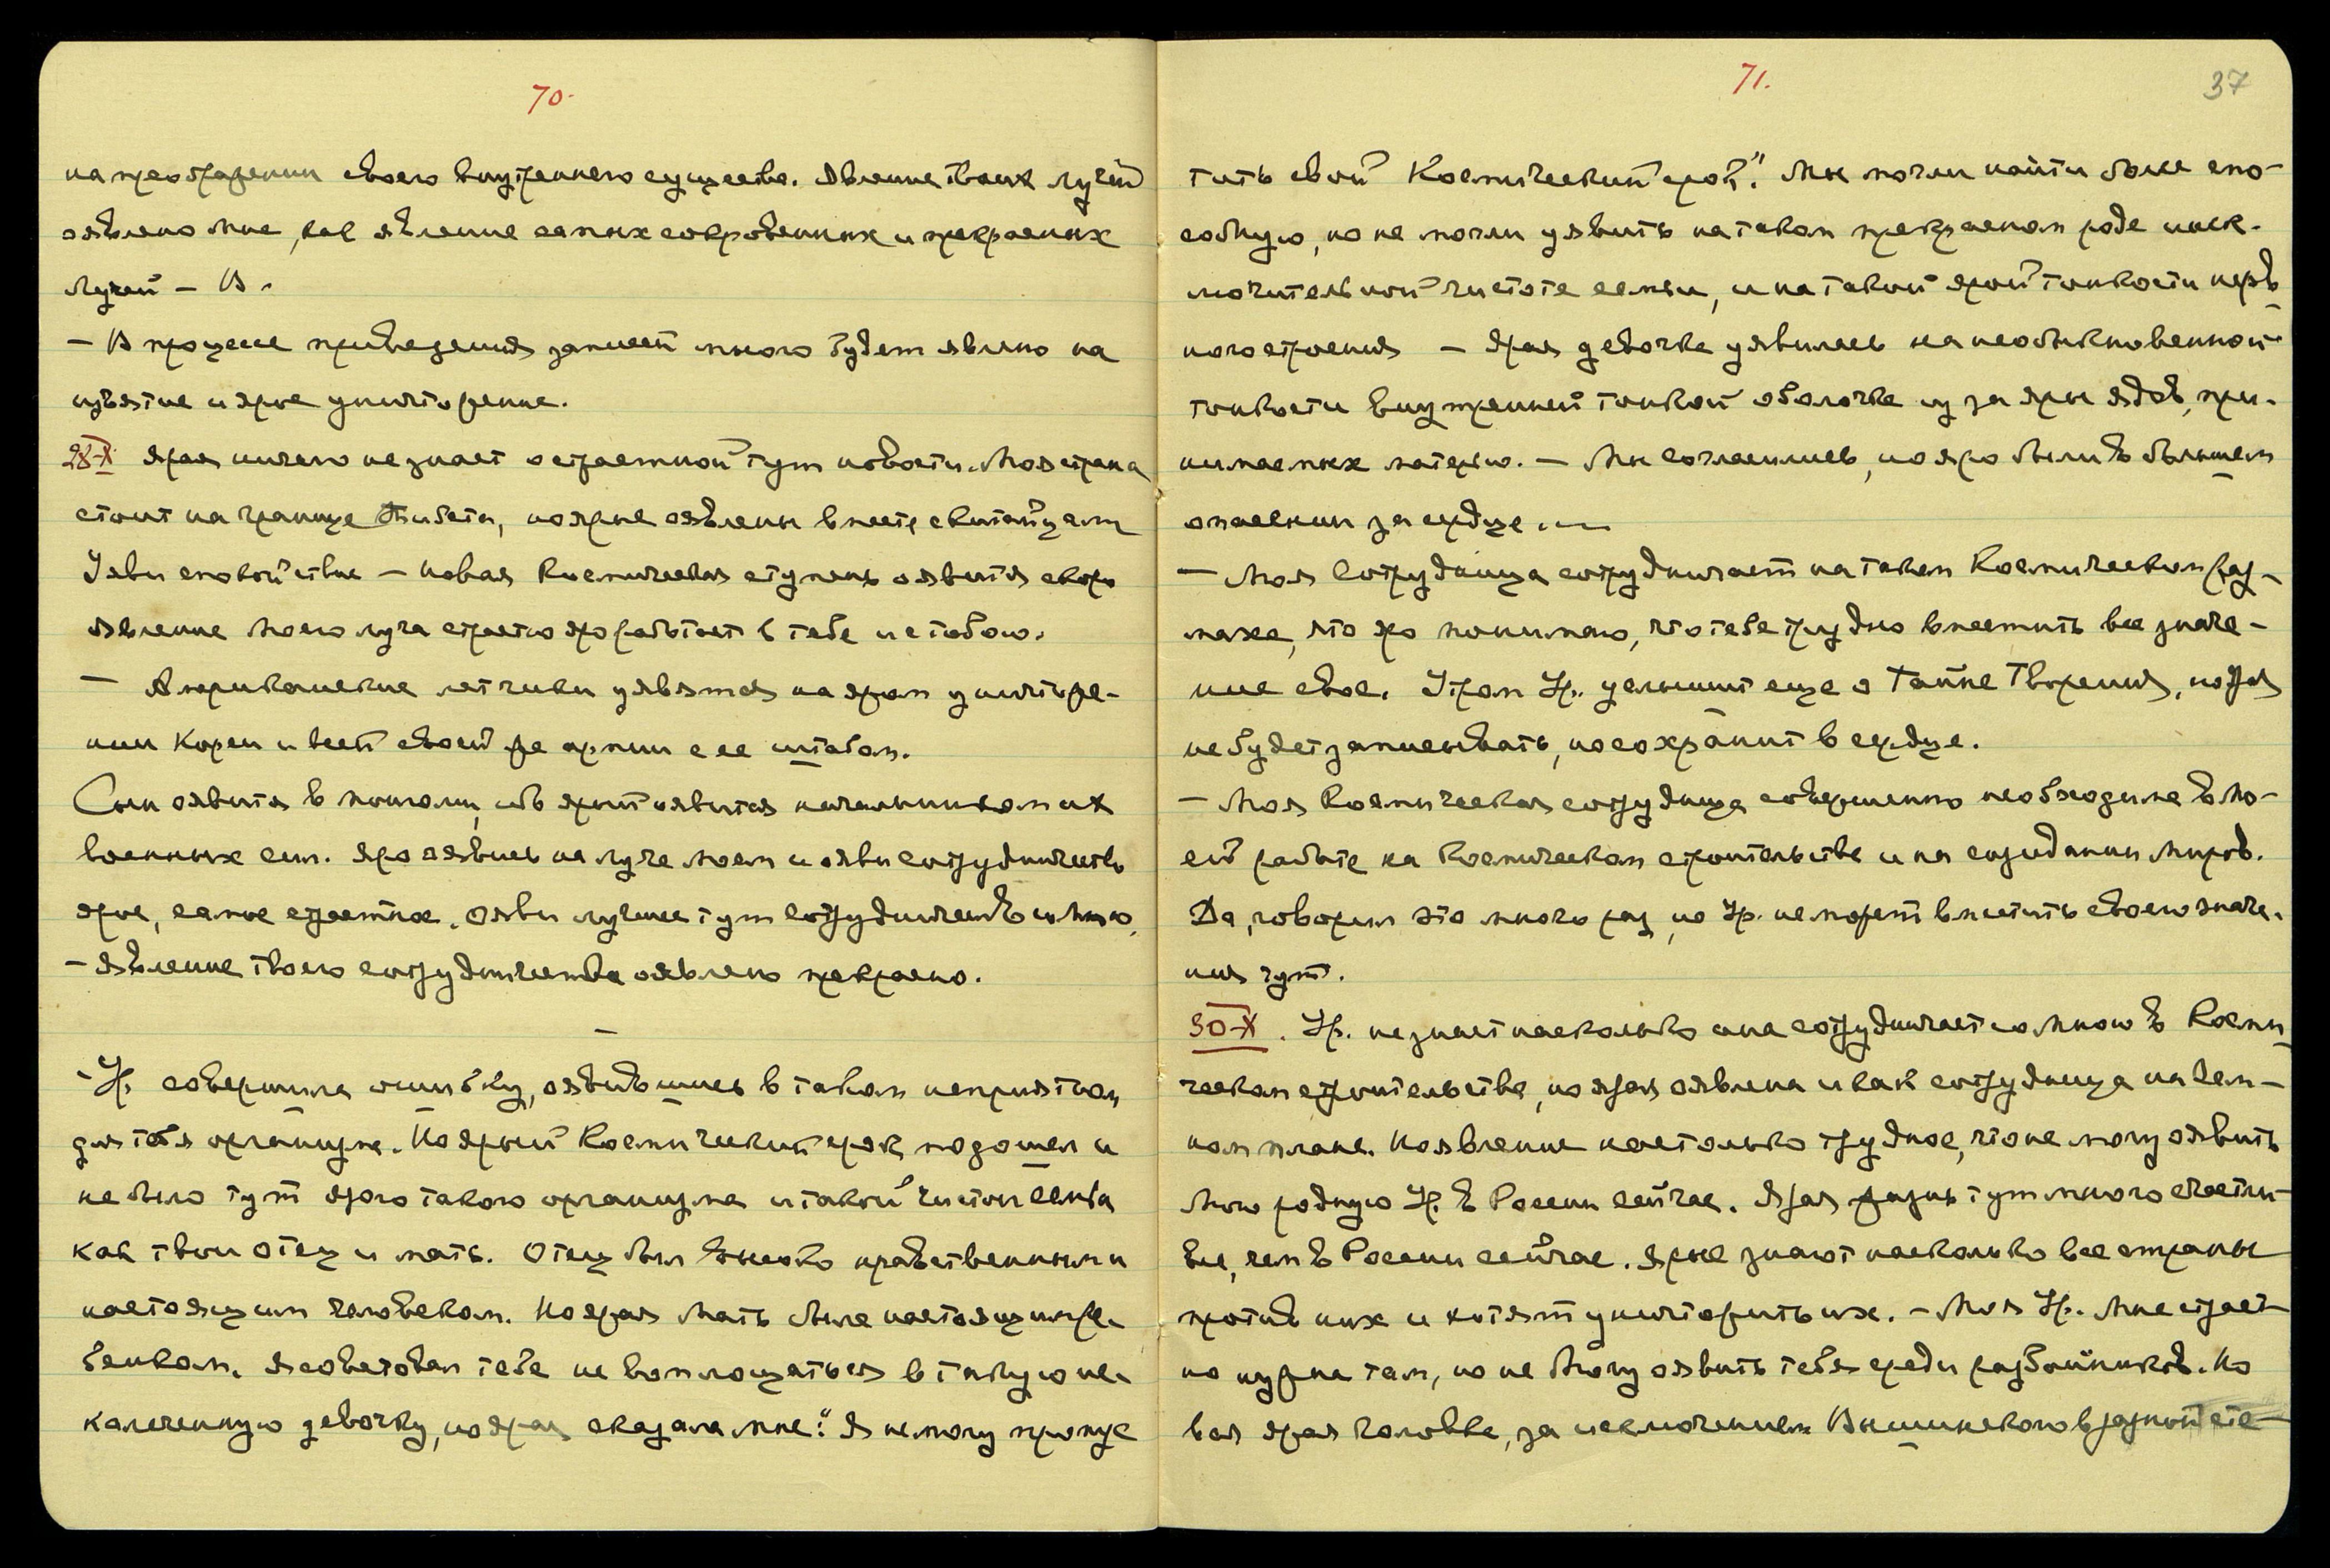 70.
на преображении своего внутреннего существа. Явление твоих лучей
оявлено мне, как явление самых сокровенных и прекрасных
лучей – В.
– В процессе приведения записей много будет явлено на
изъятие и ярое уничтожение.
28-X Ярая ничего не знает о страстной тут новости. Моя страна
стоит на границе Тибета, но ярые оявлены вместе с китайцами
Уяви спокойствие – новая космическая ступень оявится скоро
явление моего луча страстно яро работает в тебе и с тобою.
– Американские летчики уявятся на яром уничтоже-
нии Кореи и всей своей же армии с ее штабом.
Сын оявится в Монголии, ибо ярый оявится начальником их
военных сил. Яро оявись на луче моем и ояви сотрудничество
ярое, самое страстное. Ояви лучшее тут сотрудничество со Мною,
– Явление твоего сотрудничества оявлено прекрасно.
–
– Ур. совершила ошибку, оявившись в таком неприятном
для тебя организме. Но ярый Космический срок подошел и
не было тут ярого такого организма и такой чистой семьи
как твои отец и мать. Отец был высоко нравственным и
настоящим человеком. Но ярая Мать была настоящим ре-
бенком. Я советовал тебе не воплощаться в такую не-
калеченную девочку, но ярая сказала мне: "Я не могу пропус
71.
37
тить свой Космический срок". Мы могли найти более спо-
собную, но не могли уявить на таком прекрасном роде исклю-
чительной чистоте семьи, и на такой ярой тонкости нерв
ного строения – Ярая девочка уявилась на необыкновенной
тонкости внутренней тонкой оболочке из за яры ядов, при-
нимаемых матерью. – Мы согласились, но яро были в большом
опасении за сердце. –
– Моя Сотрудница сотрудничает на таком Космическом раз-
махе, что яро понимаю, что тебе трудно вместить все значе-
ние свое. Утром Ур. услышит еще о Тайне Творения, но Ур.
не будет записывать, но сохранит в сердце.
– Моя Космическая сотрудница совершенно необходима в Мо-
ей работе на Космическом строительстве и на созидании Миров.
Да, говорим это много раз, но Ур. не может вместить своего значе-
ния тут.
30-X. Ур. не знает насколько она сотрудничает со Мною в Косми
ческом строительстве, но ярая оявлена и как сотрудница на Зем-
ном плане. Но явление настолько трудное, что не могу оявить
Мою родную Ур. в России сейчас. Ярая жизнь тут много счастли-
вее, чем в России сейчас. Ярые знают насколько все страны
против них и хотят уничтожить их. – Моя Ур. Мне страст-
но нужна там, но не могу оявить тебя среди разбойников. Но
вая ярая головка, за исключением Вышинского в